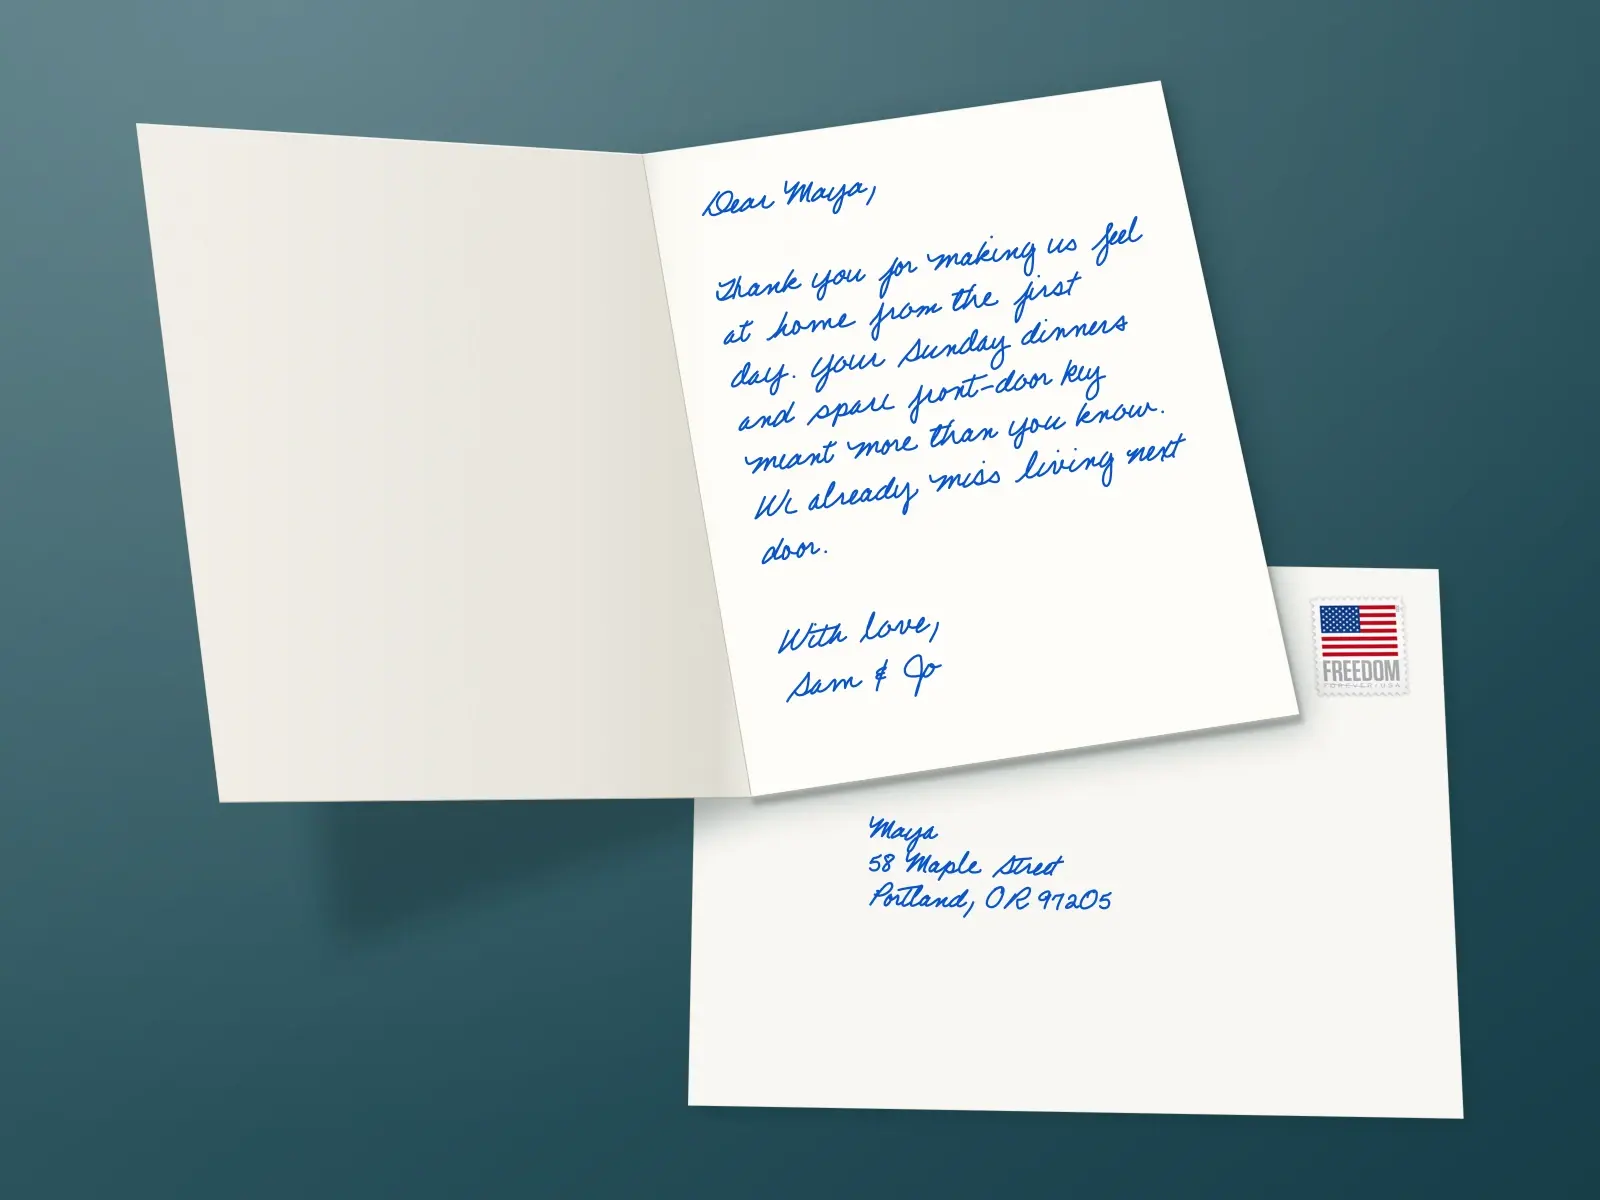 Dear Maya,
Thank you for making us feel
at home from the first
day. Your Sunday dinners
and spare front-door key
meant more than you know.
We already miss living next
door.
With love,
Sam & Jo
FREEDOM
FOREVER/USA
Maya
58 Maple Street
Portland, OR 97205